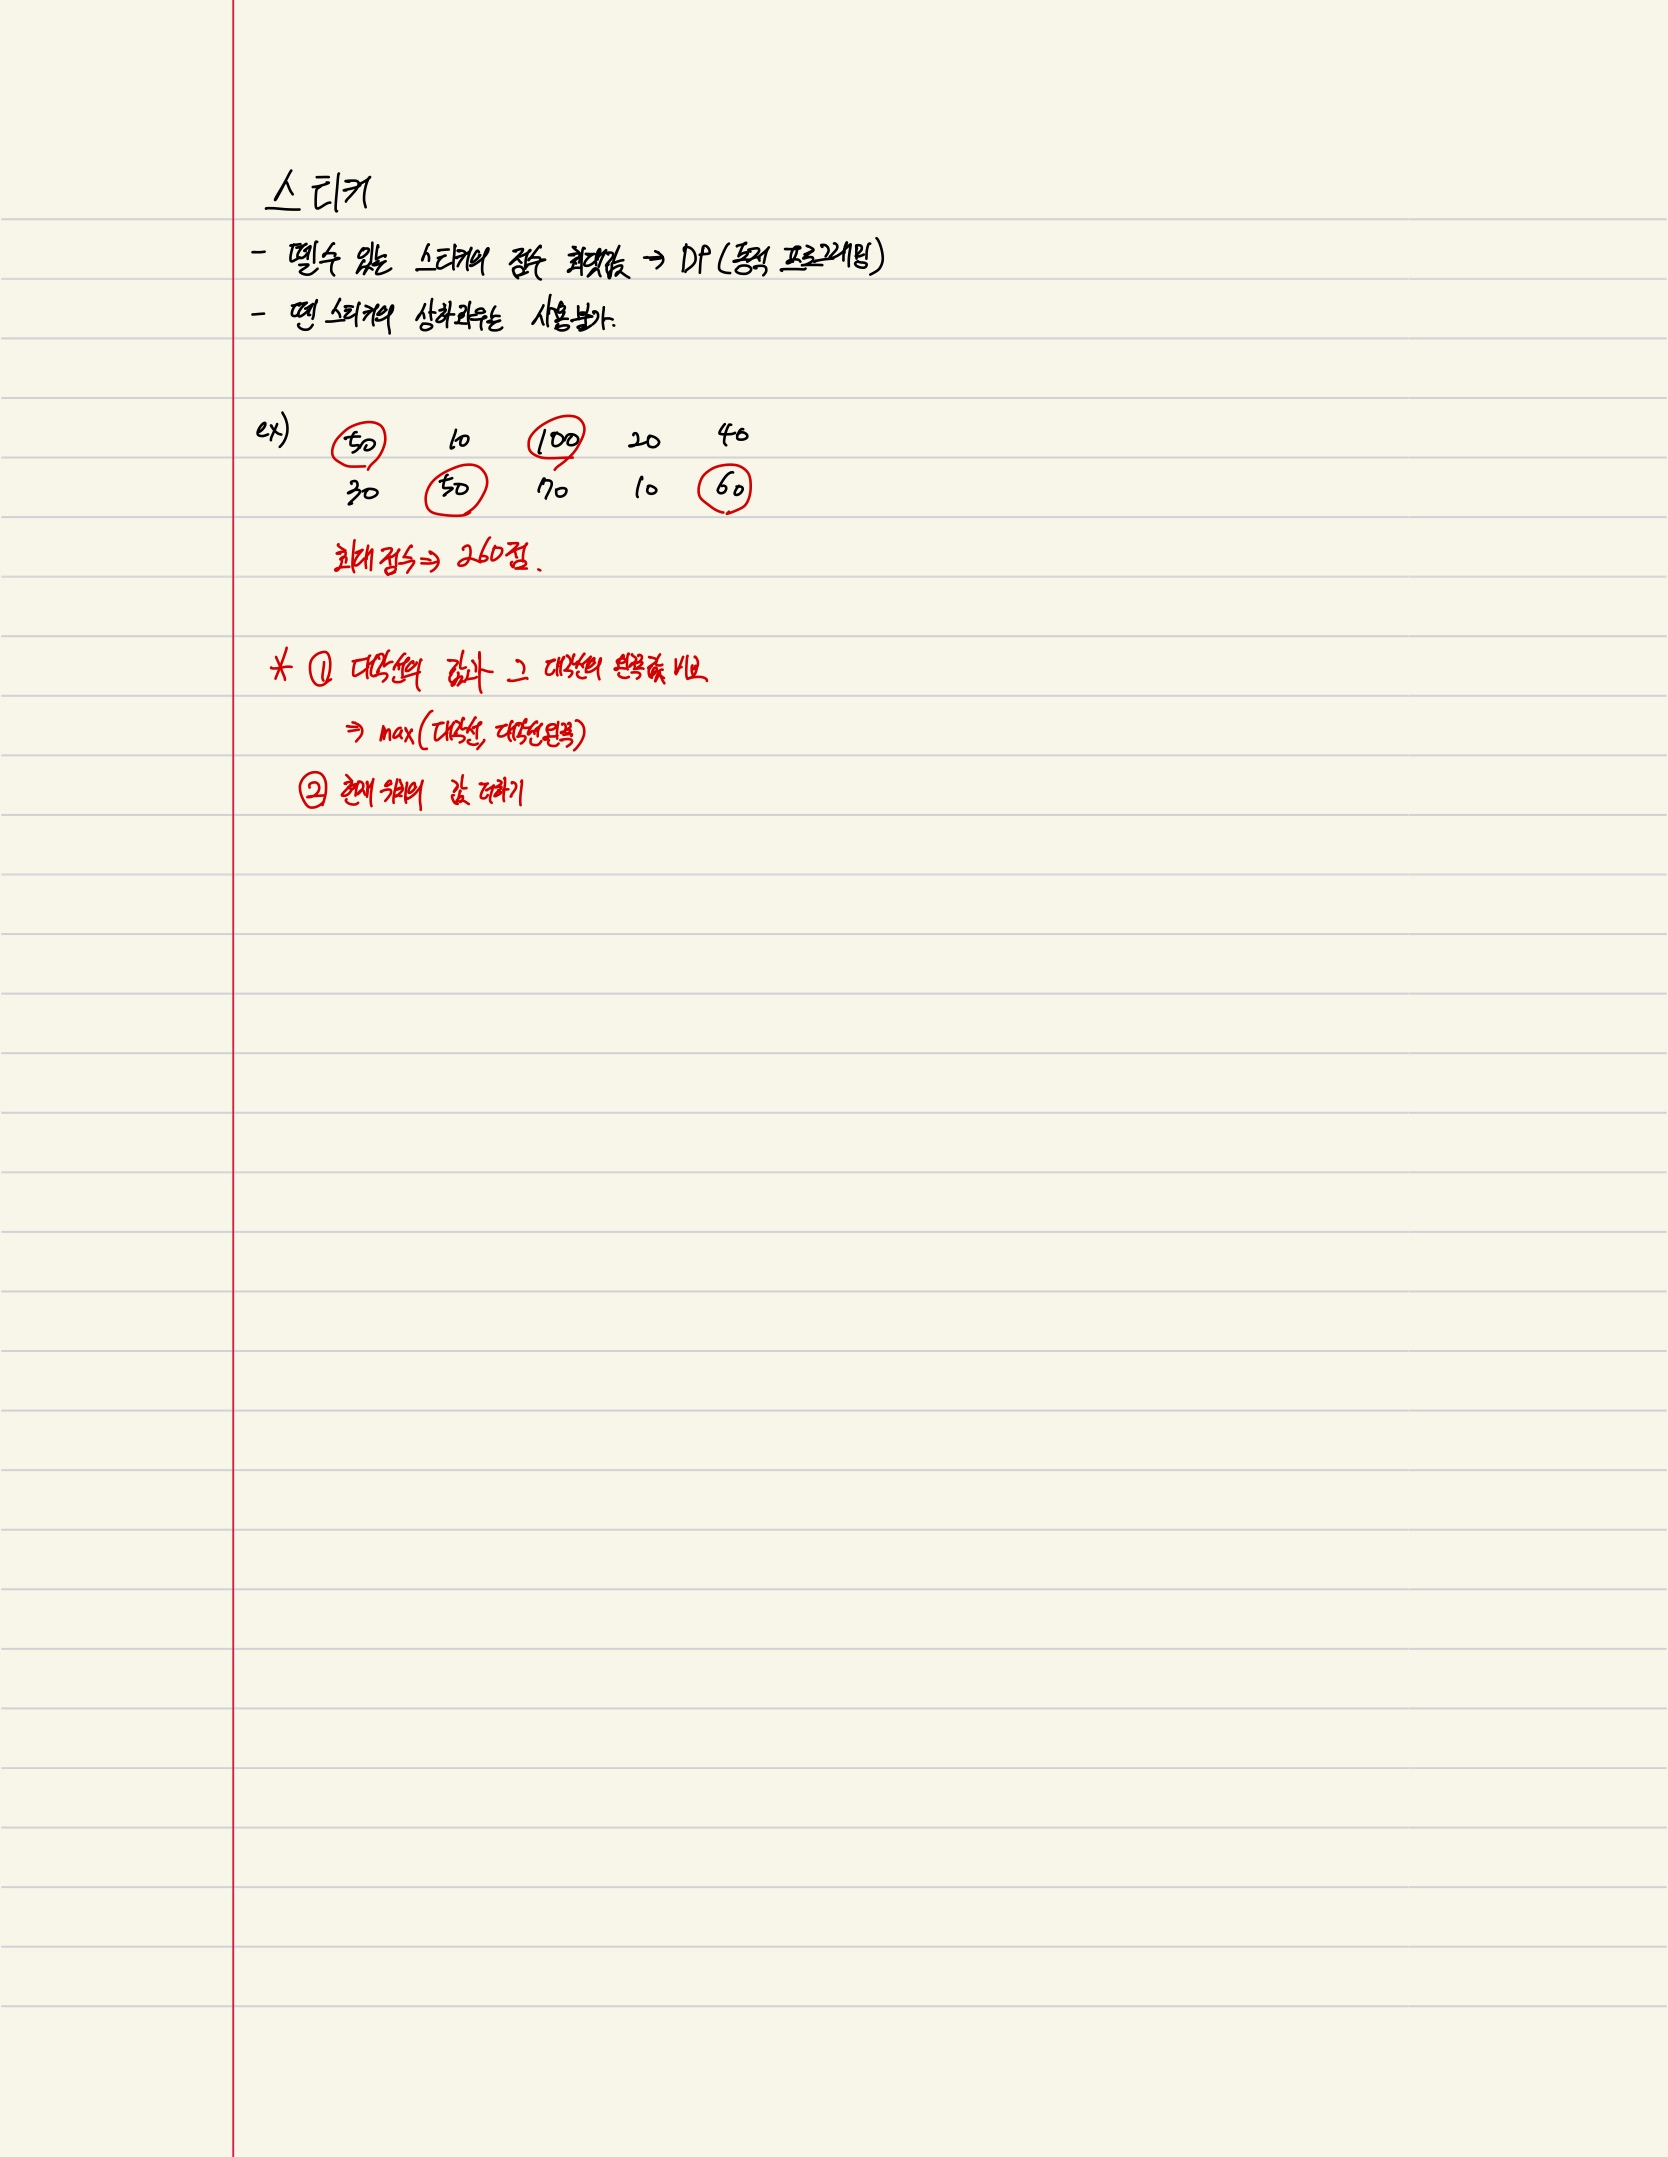 스티커
- 뗄 수 있는 스티커의 점수 최댓값 → DP (동적 프로그래밍)
- 뗀 스티커의 상하좌우는 사용불가.
ex) 50 10 100 20 40
30 50 70 10 60
최대 점수 ⇒ 260점.
* ① 대각선의 값과 그 대각선의 왼쪽 값 비교
⇒ max(대각선, 대각선 왼쪽)
② 현재 위치의 값 더하기